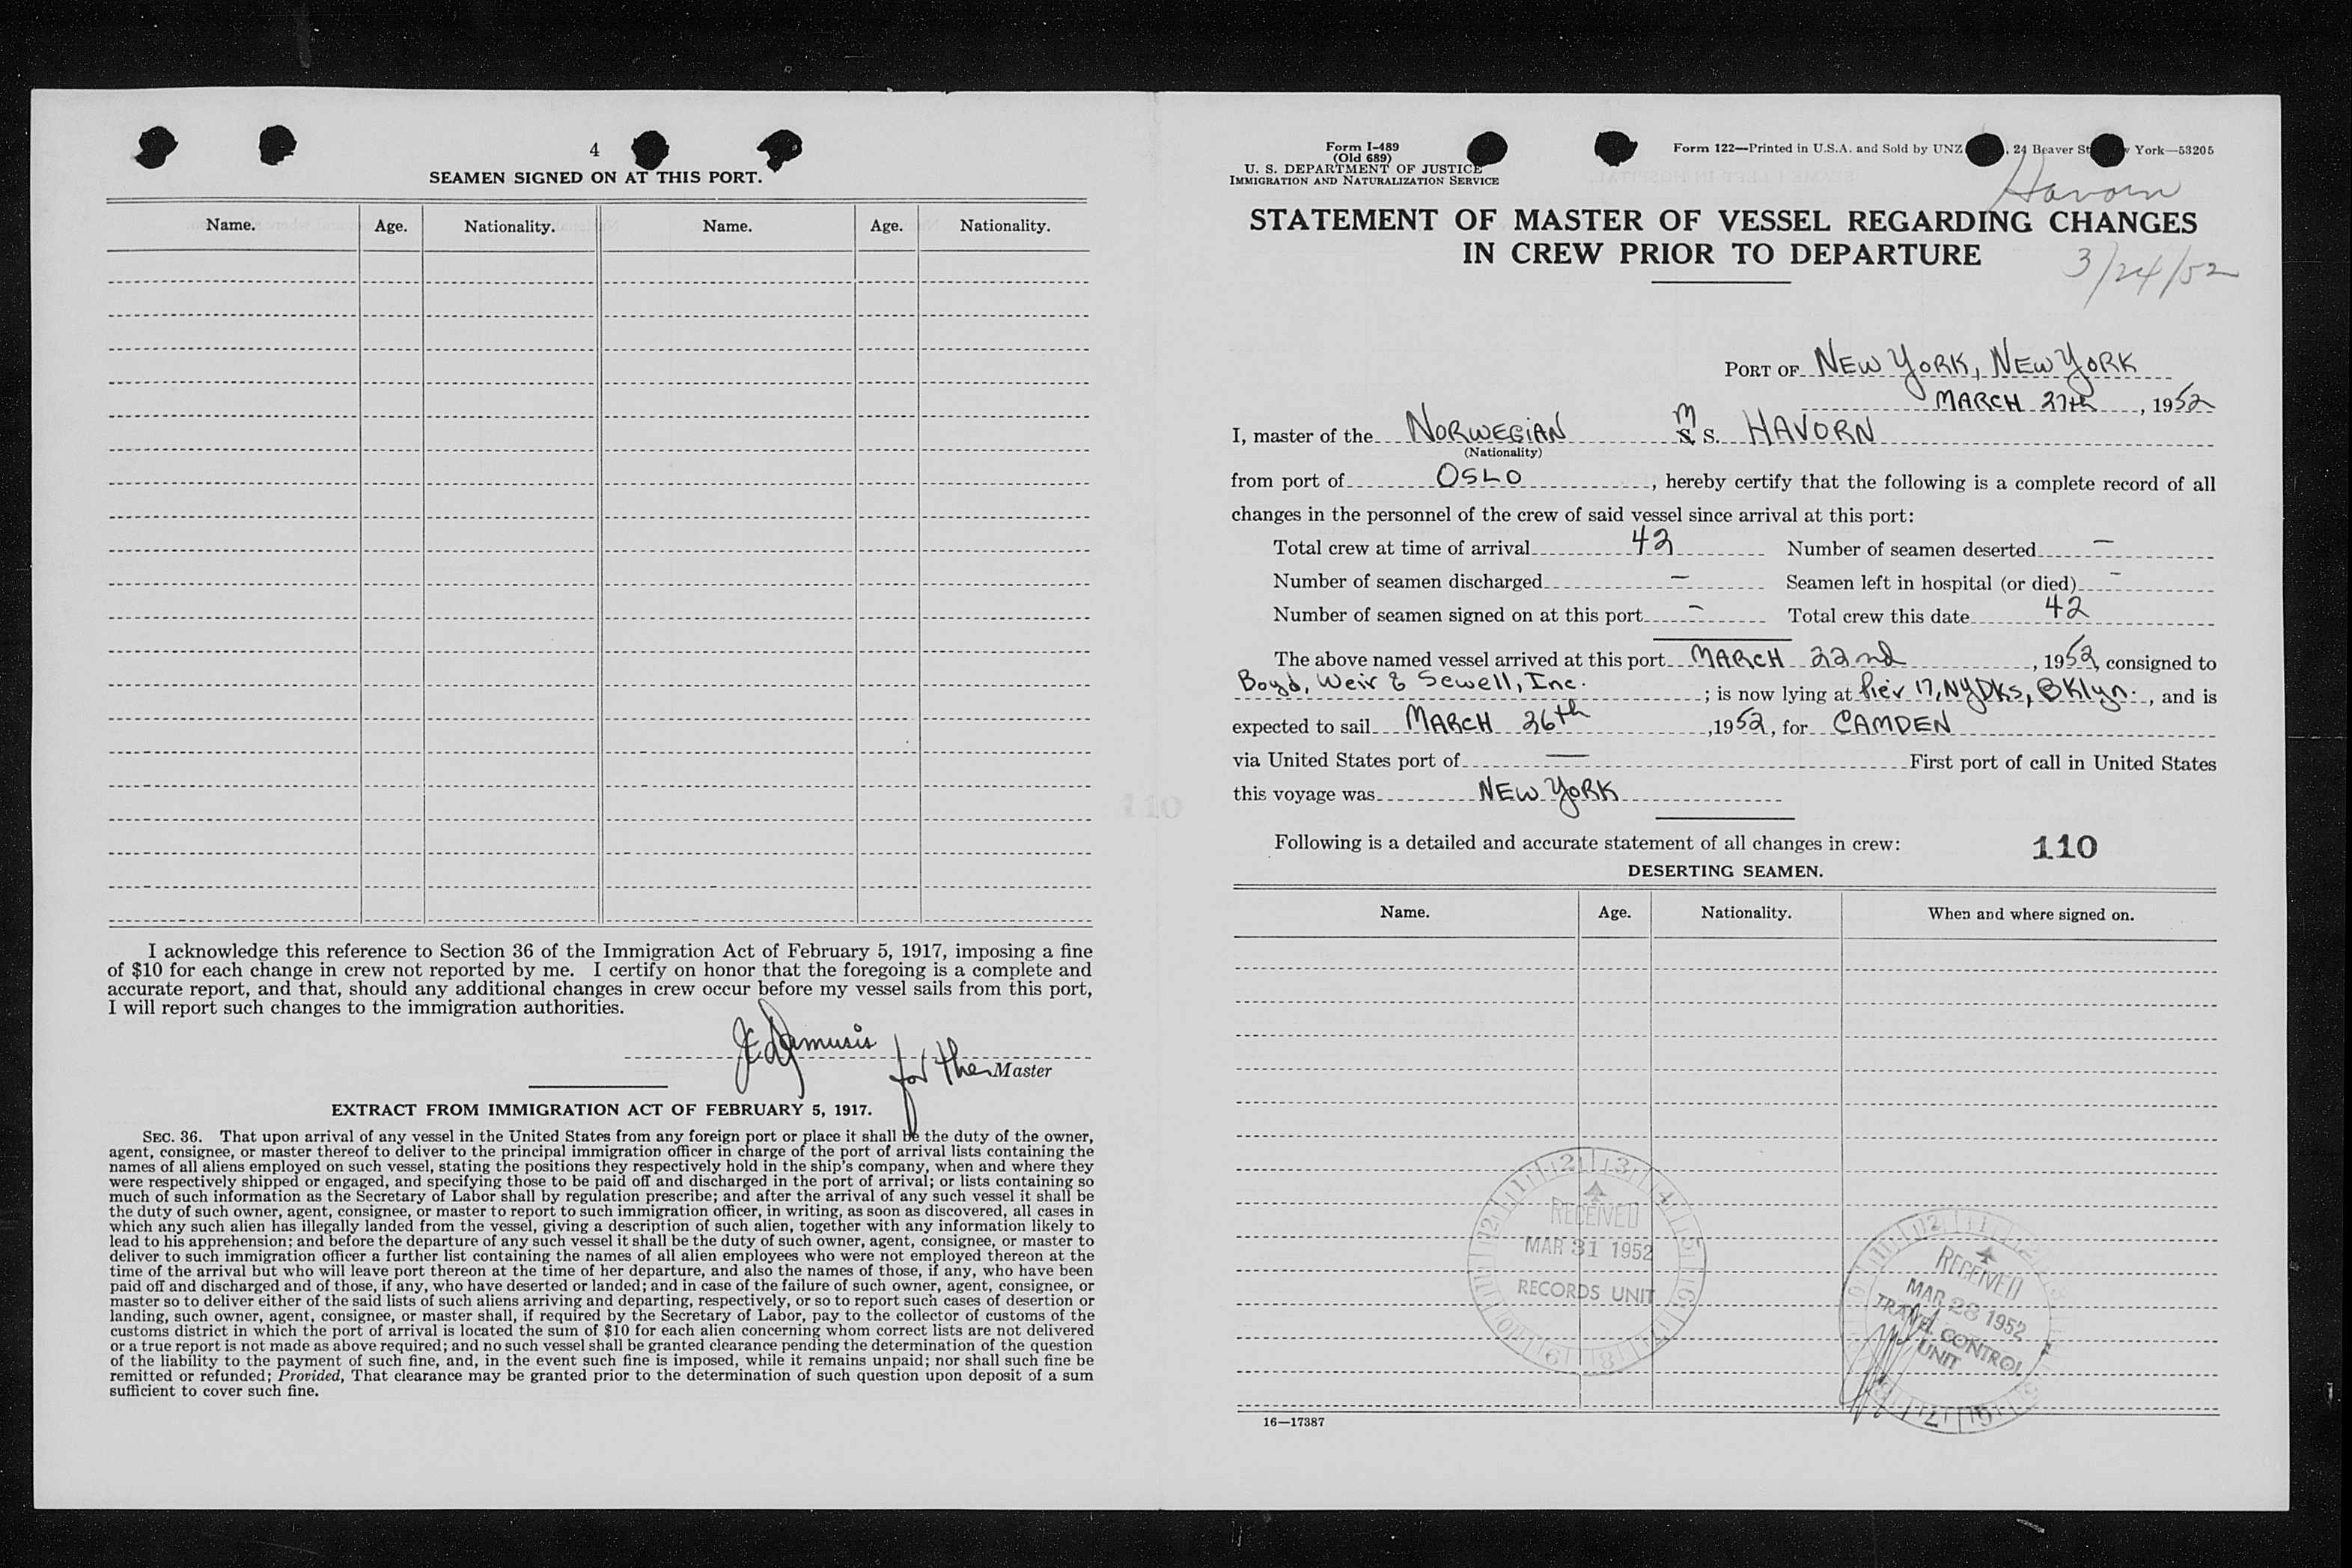 4
SEAMEN SIGNED ON AT THIS PORT.
Name. Age. Nationality. Name. Age. Nationality.
I acknowledge this reference to Section 36 of the Immigration Act of February 5, 1917, imposing a fine
of $10 for each change in crew not reported by me. I certify on honor that the foregoing is a complete and
accurate report, and that, should any additional changes in crew occur before my vessel sails from this port,
I will report such changes to the immigration authorities.
for the Master
EXTRACT FROM IMMIGRATION ACT OF FEBRUARY 5, 1917.
SEC. 36. That upon arrival of any vessel in the United States from any foreign port or place it shall be the duty of the owner,
agent, consignee, or master thereof to deliver to the principal immigration officer in charge of the port of arrival lists containing the
names of all aliens employed on such vessel, stating the positions they respectively hold in the ship's company, when and where they
were respectively shipped or engaged, and specifying those to be paid off and discharged in the port of arrival; or lists containing so
much of such information as the Secretary of Labor shall by regulation prescribe; and after the arrival of any such vessel it shall be
the duty of such owner, agent, consignee, or master to report to such immigration officer, in writing, as soon as discovered, all cases in
which any such alien has illegally landed from the vessel, giving a description of such alien, together with any information likely to
lead to his apprehension; and before the departure of any such vessel it shall be the duty of such owner, agent, consignee, or master to
deliver to such immigration officer a further list containing the names of all alien employees who were not employed thereon at the
time of the arrival but who will leave port thereon at the time of her departure, and also the names of those, if any, who have been
paid off and discharged and of those, if any, who have deserted or landed; and in case of the failure of such owner, agent, consignee, or
master so to deliver either of the said lists of such aliens arriving and departing, respectively, or so to report such cases of desertion or
landing, such owner, agent, consignee, or master shall, if required by the Secretary of Labor, pay to the collector of customs of the
customs district in which the port of arrival is located the sum of $10 for each alien concerning whom correct lists are not delivered
or a true report is not made as above required; and no such vessel shall be granted clearance pending the determination of the question
of the liability to the payment of such fine, and, in the event such fine is imposed, while it remains unpaid; nor shall such fine be
remitted or refunded; Provided, That clearance may be granted prior to the determination of such question upon deposit of a sum
sufficient to cover such fine.
Form I-489
(Old 689)
U. S. DEPARTMENT OF JUSTICE
IMMIGRATION AND NATURALIZATION SERVICE
Form 122—Printed in U.S.A. and Sold by UNZ , 24 Beaver St York—53205
Havorn
STATEMENT OF MASTER OF VESSEL REGARDING CHANGES
IN CREW PRIOR TO DEPARTURE
3/24/52
PORT OF NEW YORK, NEW YORK
MARCH 27th, 1952
I, master of the NORWEGIAN M S. HAVORN
(Nationality)
from port of OSLO, hereby certify that the following is a complete record of all
changes in the personnel of the crew of said vessel since arrival at this port:
Total crew at time of arrival 42 Number of seamen deserted —
Number of seamen discharged — Seamen left in hospital (or died) -
Number of seamen signed on at this port - Total crew this date 42
The above named vessel arrived at this port MARCH 22nd, 1952, consigned to
Boyd, Weir & Sewell, Inc. ; is now lying at Pier 17, NYDKs, BKlyn., and is
expected to sail MARCH 26th, 1952, for CAMDEN
via United States port of — First port of call in United States
this voyage was NEW YORK
Following is a detailed and accurate statement of all changes in crew:
110
DESERTING SEAMEN.
Name. Age. Nationality. When and where signed on.
RECEIVED
MAR 31 1952
RECORDS UNIT
RECEIVED
MAR 28 1952
TRAVEL CONTROL
UNIT
16—17387